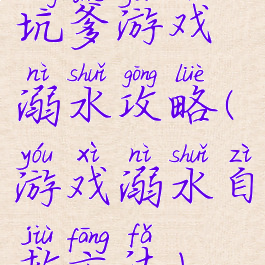 坑爹游戏
nì shuǐ gōng lüè
溺水攻略(
yóu xì nì shuǐ zì
游戏溺水自
jiù fāng fǎ
救方法)